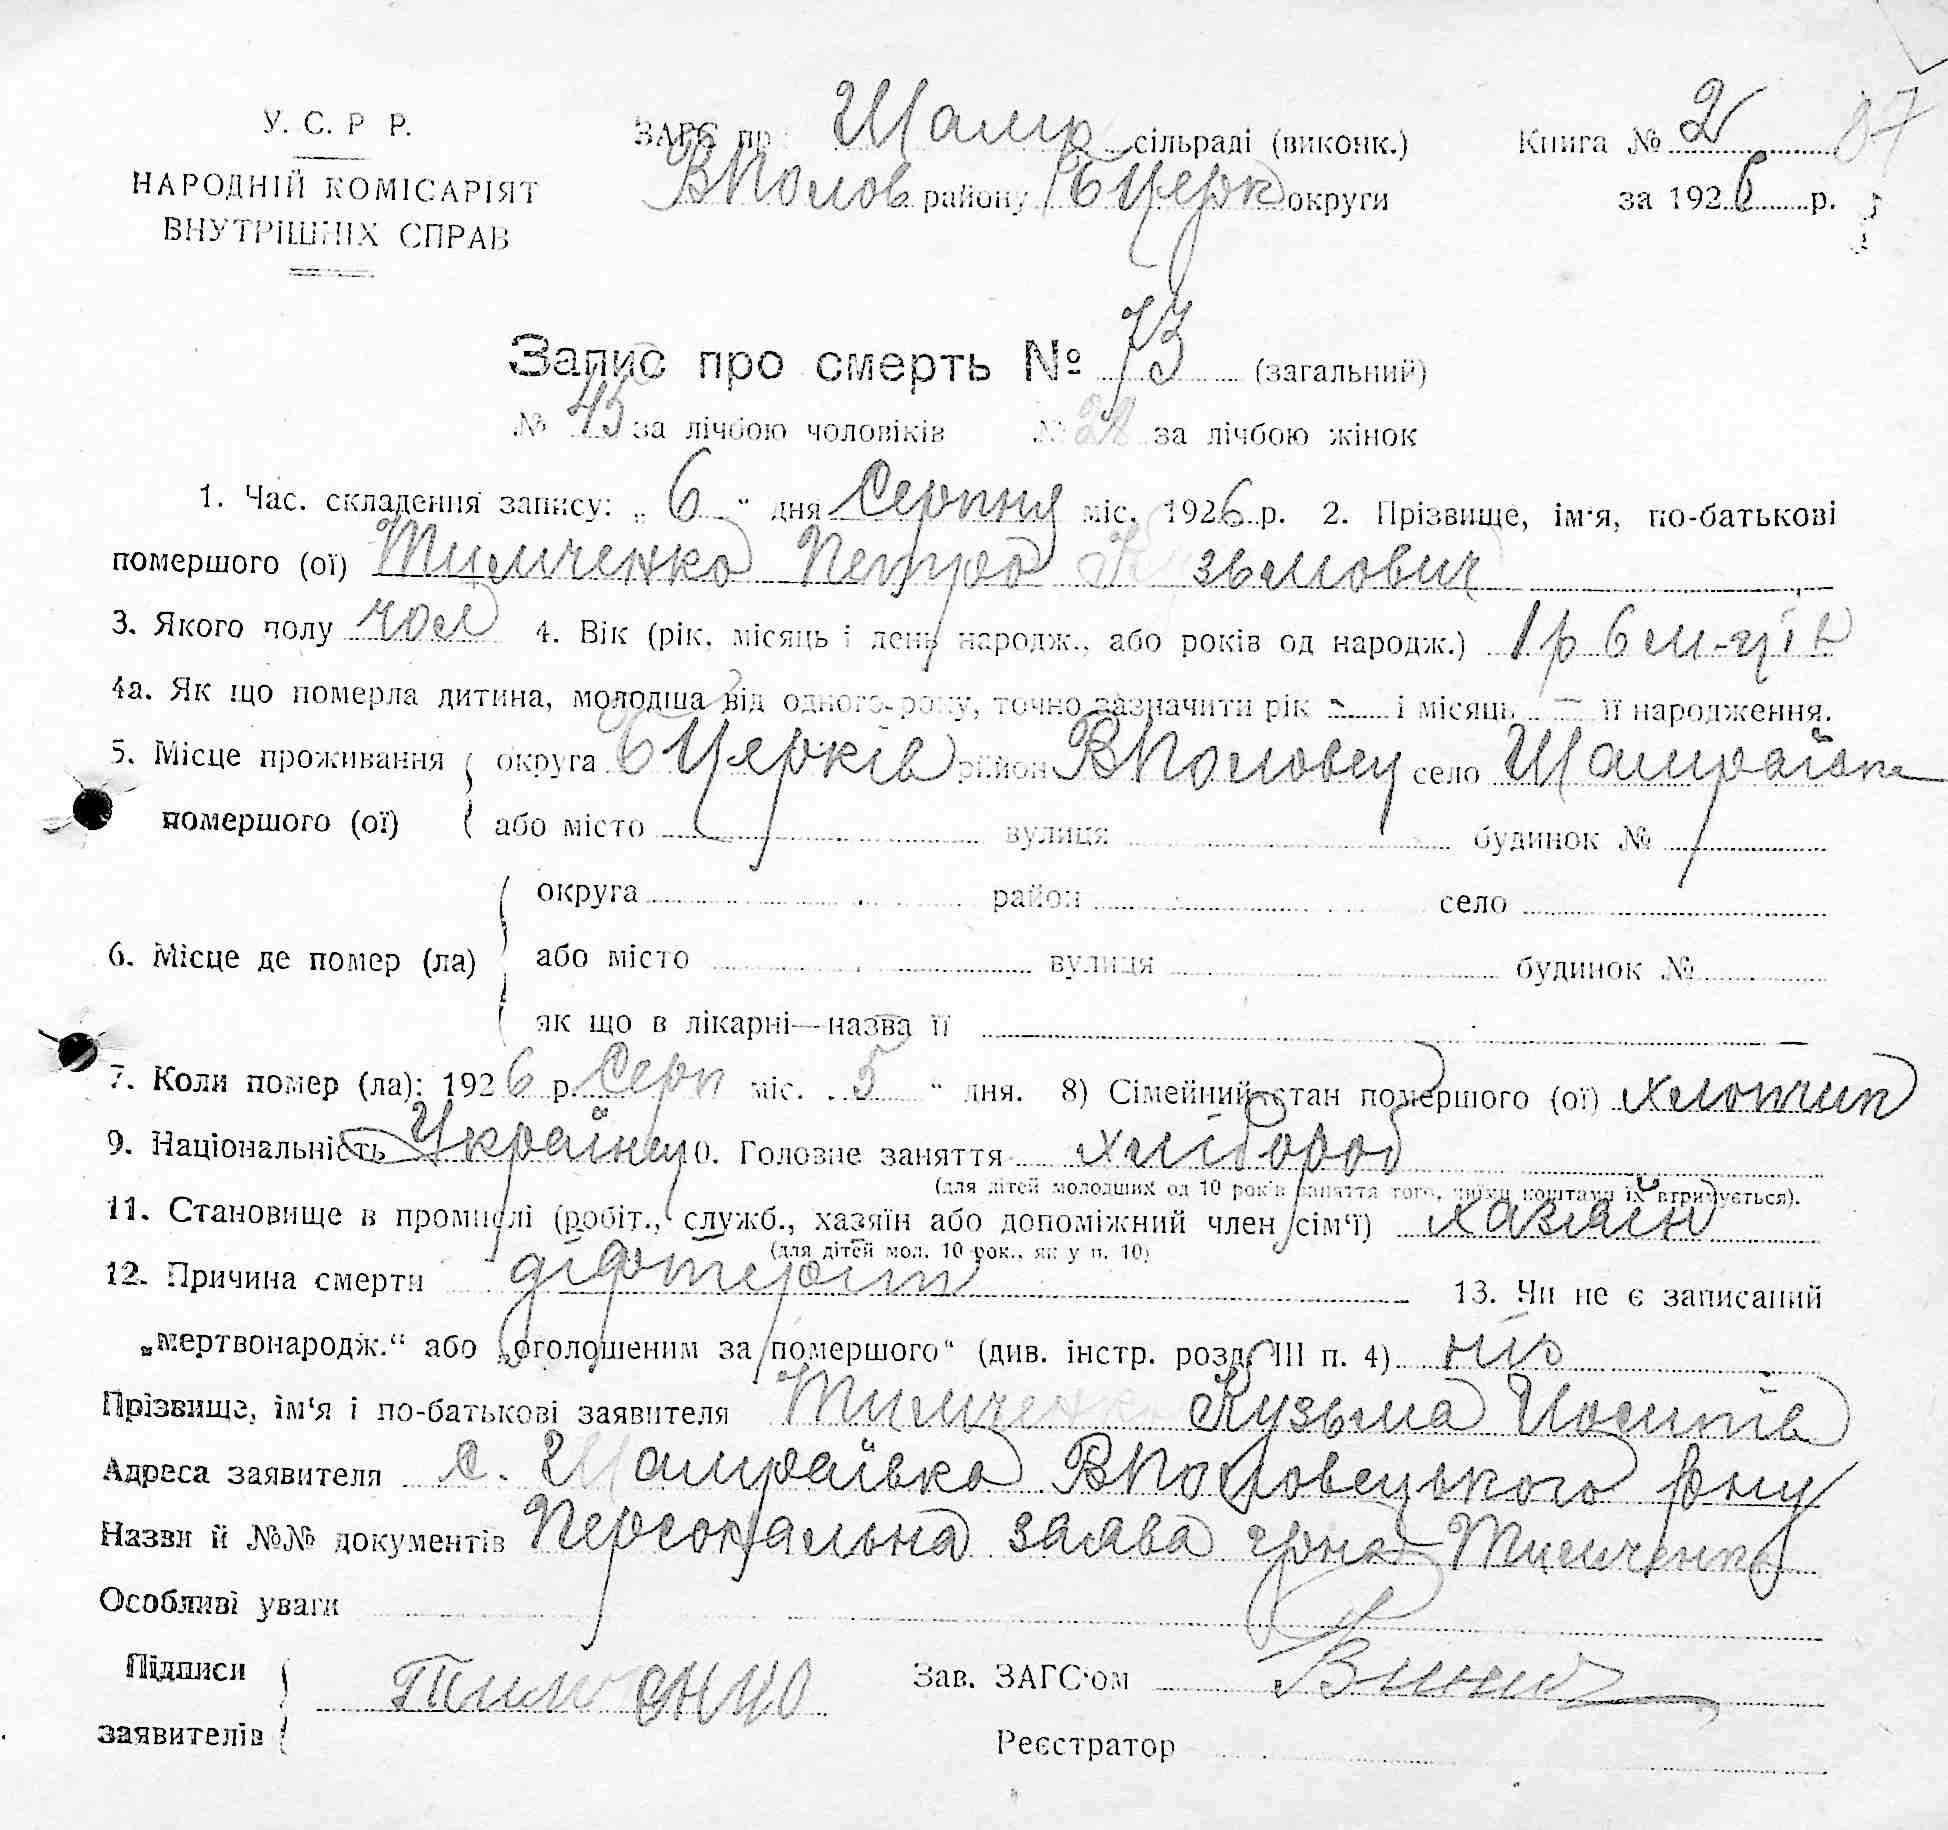 У. С. Р Р.
НАРОДНІЙ КОМІСАРІЯТ
ВНУТРІШНІХ СПРАВ
ЗАГС пр Шамр сільраді (виконк.)
ВПолов району БЦерк округи
Книга № 2 87
за 1926 р.
Запис про смерть № 73 (загальний)
№ 45 за лічбою чоловіків № 28 за лічбою жінок
1. Час. складення запису: „ 6 “ дня Серпня міс. 1926 р. 2. Прізвище, ім‘я, по-батькові
помершого (ої) Тимченко Петро Кузьмович
3. Якого полу чол 4. Вік (рік, місяць і день народж., або років од народж.) 1 р 6 м-ців
4а. Як що померла дитина, молодша від одного року, точно зазначити рік - і місяць — її народження.
5. Місце проживання округа БЦерків район ВПоловец село Шамраївка
помершого (ої) або місто вулиця будинок №
округа район село
6. Місце де помер (ла) або місто вулиця будинок №
як що в лікарні—назва її
7. Коли помер (ла): 1926 р. Серп міс. 5 “ дня. 8) Сімейний стан помершого (ої) хлопчик
9. Національність Українец 10. Головне заняття хлібороб
(для дітей молодших од 10 років заняття того, чиїми коштами їх втримується).
11. Становище в промислі (робіт., служб., хазяїн або допоміжний член сім‘ї) хазяїн
(для дітей мол. 10 рок., як у п. 10)
12. Причина смерти діфтеріт 13. Чи не є записаний
„мертвонародж.“ або „оголошеним за помершого“ (див. інстр. розд. III п. 4) ніт
Прізвище, ім‘я і по-батькові заявителя Тимченко Кузьма Иосипів
Адреса заявителя с. Шамраївка ВПоловецького рну
Назви й №№ документів Персональна заява грна Тимченка
Особливі уваги
Підписи Тимченко Зав. ЗАГС‘ом
заявителів Реєстратор